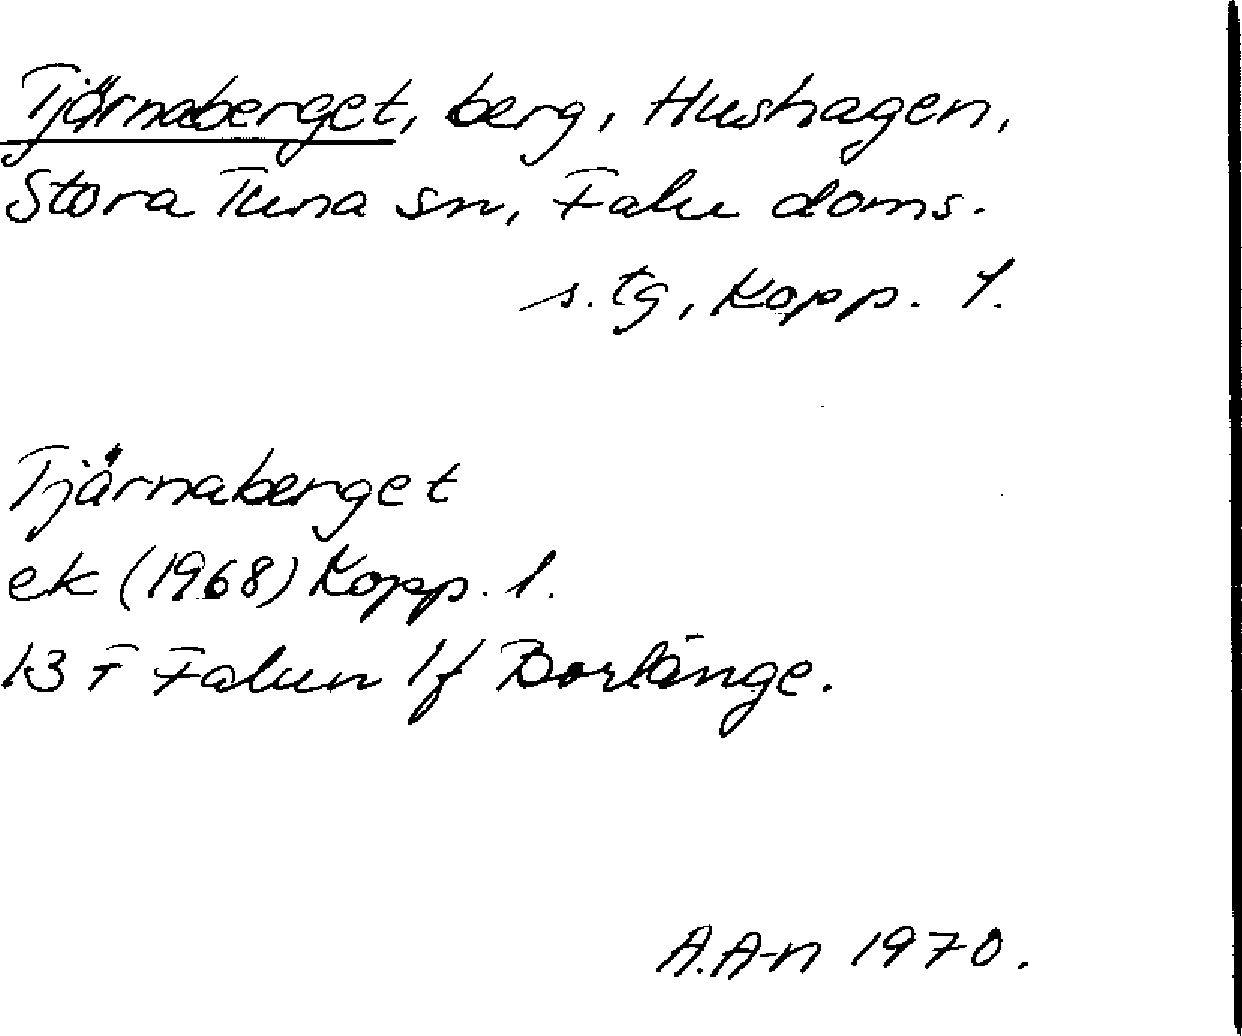 Tjärnaberget, berg, Hushagen,
Stora Tuna sn, Falu doms.
s. tg, Kopp. l.
Tjärnaberget
ek (1968) Kopp. l.
13 F Falun 1f Borlänge.
A.A-n 1970.